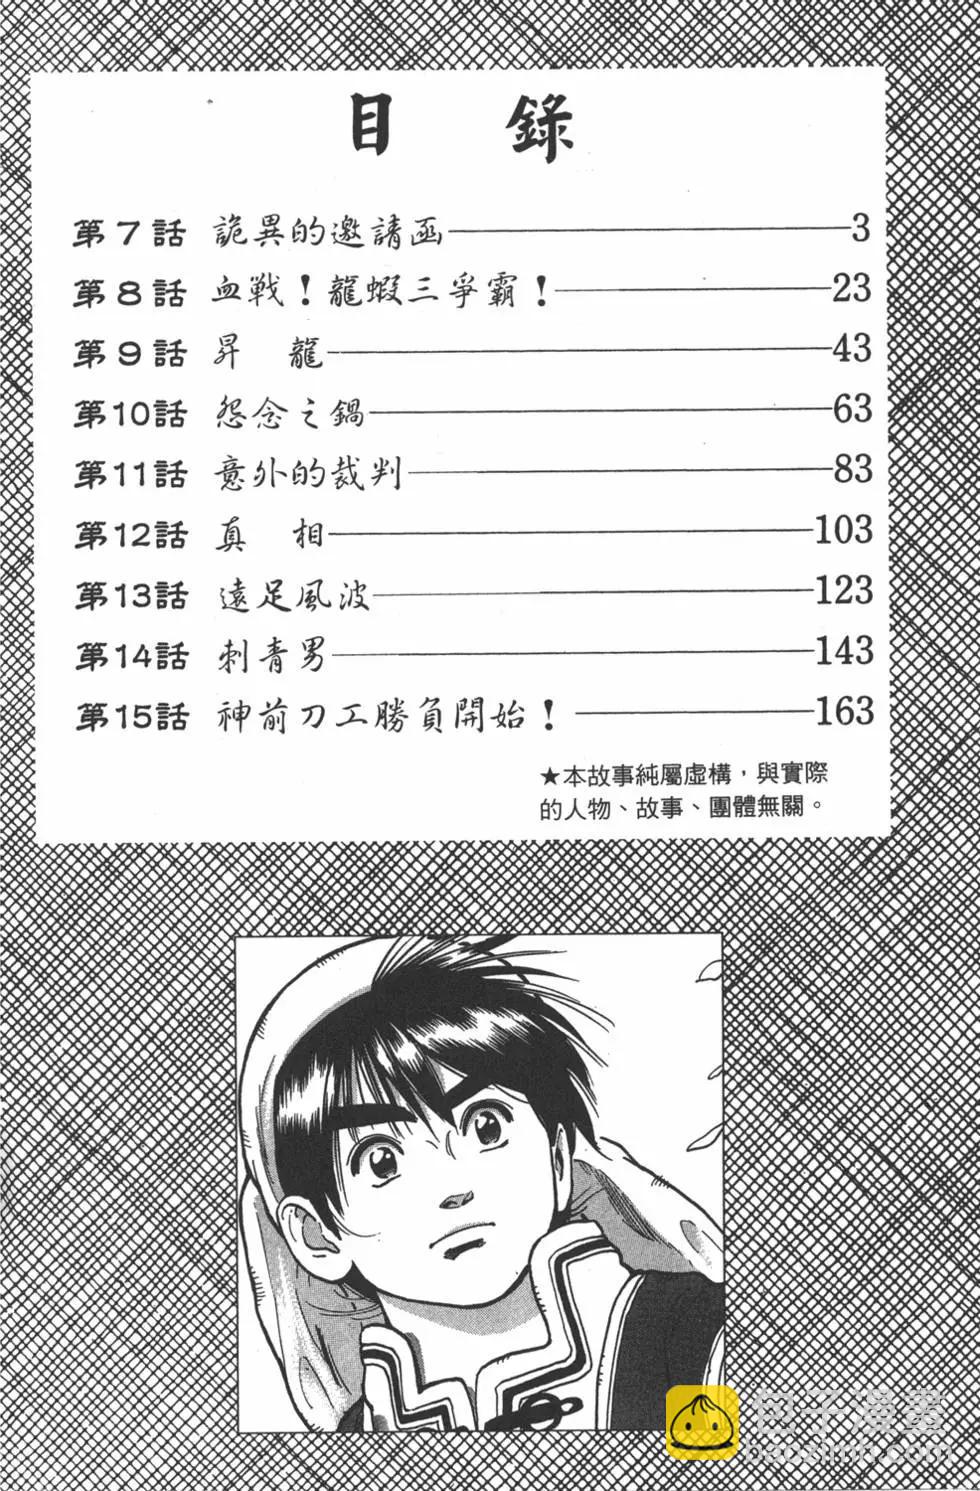 目　錄
第7話 詭異的邀請函 3
第8話 血戦！龍蝦三爭霸！ 23
第9話 昇　龍 43
第10話 怨念之鍋 63
第11話 意外的裁判 83
第12話 真　相 103
第13話 遠足風波 123
第14話 刺青男 143
第15話 神前刀工勝負開始！ 163
★本故事純屬虛構，與實際
的人物、故事、團體無關。
包子漫畫
baozimh.com